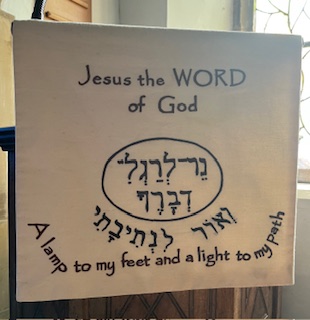 Jesus the WORD
of God
נֵר־לְרַגְלִי
דְבָרֶךָ
וְאוֹר לִנְתִיבָתִי
A lamp to my feet and a light to my path